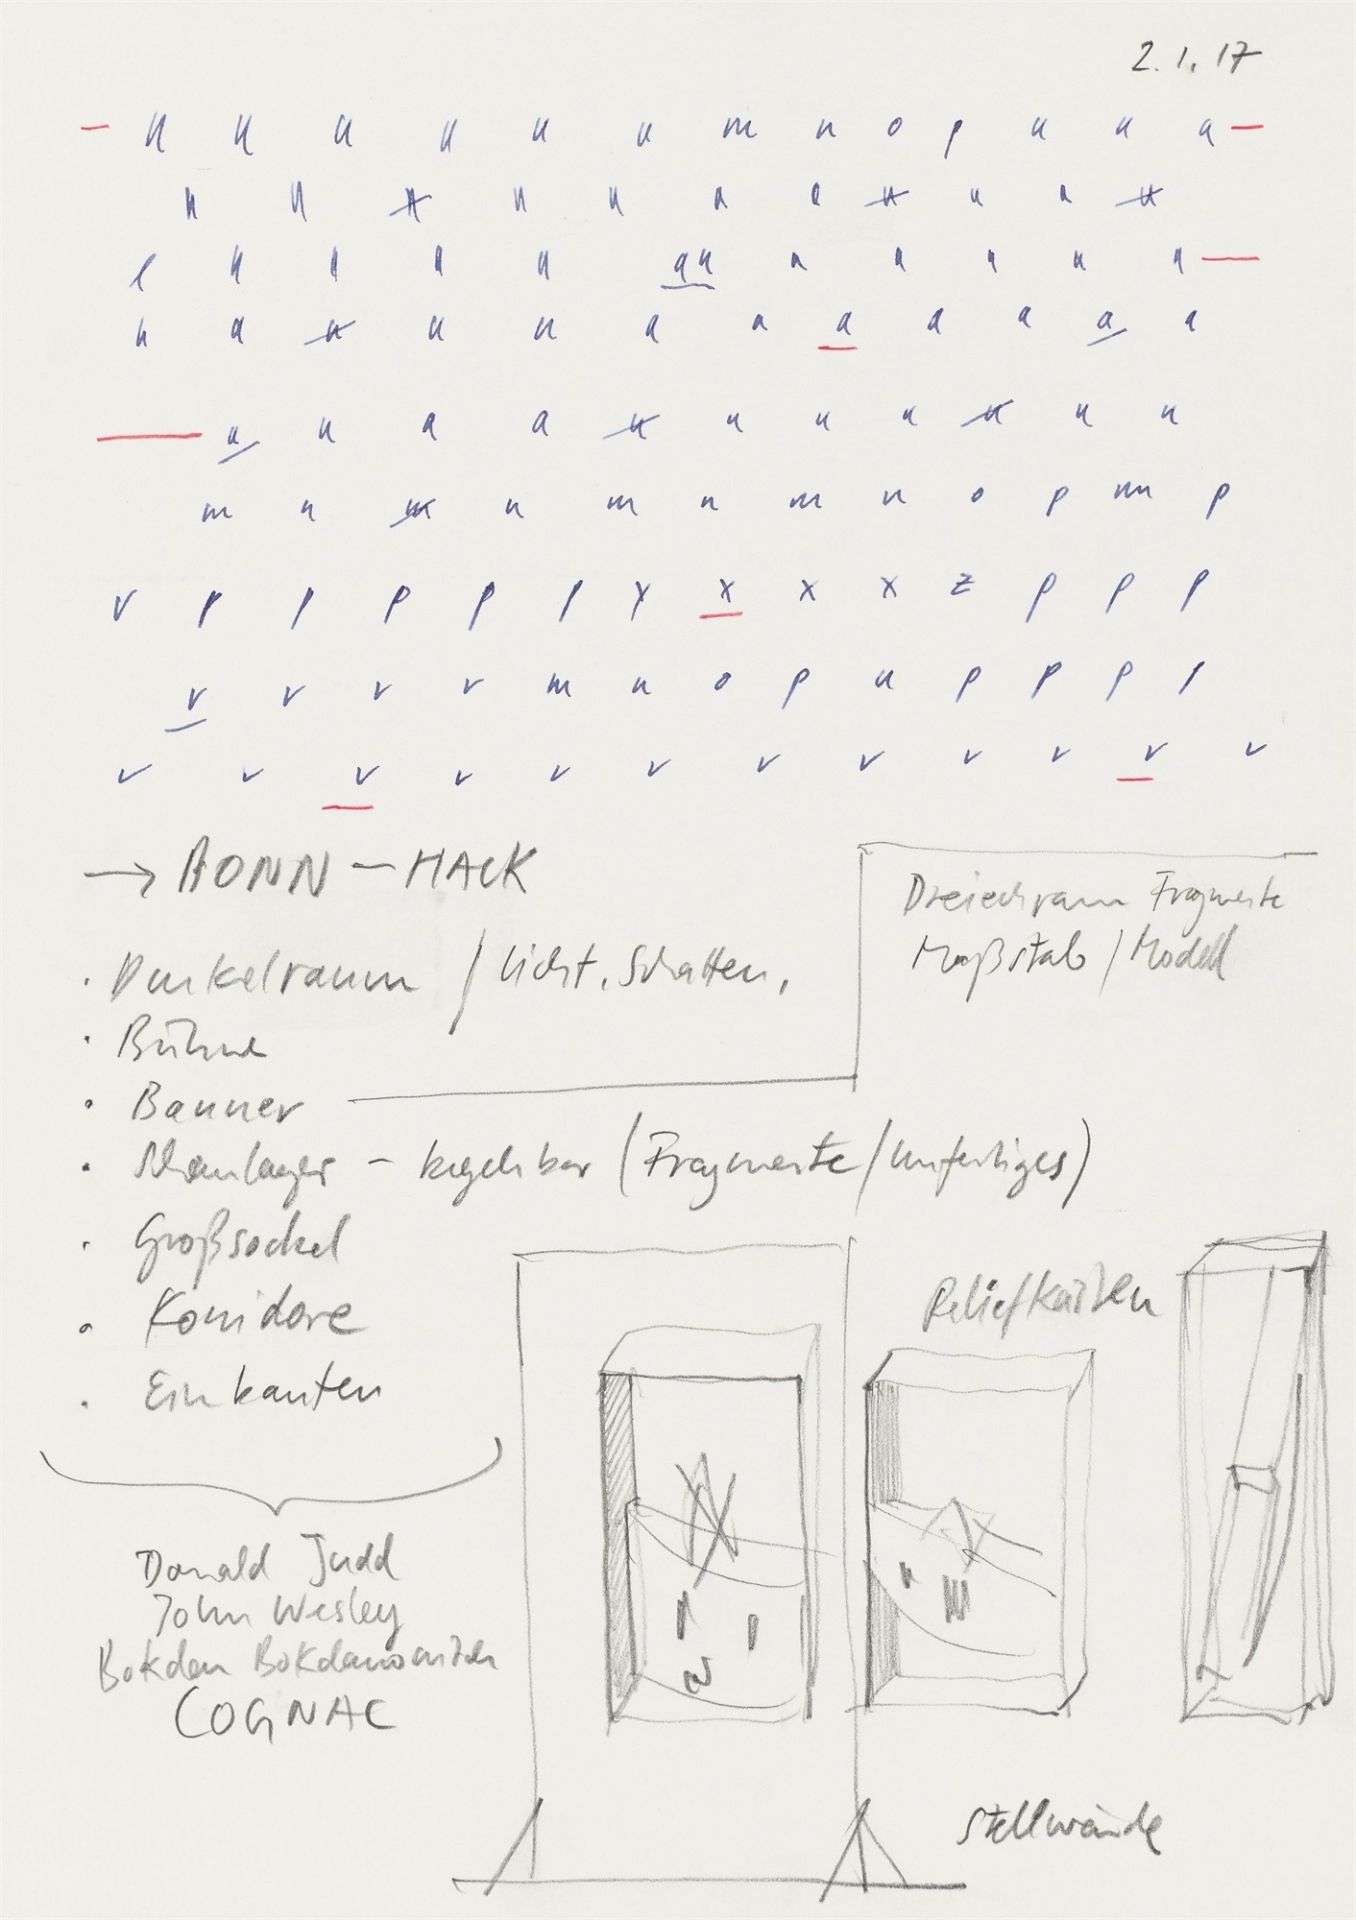 2.1.17
u u u u u u m n o p u u a
u u u u u u u u
u u u u a a u u
u a u u u a a a a a a a
u u a a u u u u u u u
m n m n m n m n o p m p
v p p p p p y x x x z p p p
v v v v m n o p u p p p p
v v v v v v v v v v v v
→ BONN – HACK
Dreiecksraum Fragmente
Maßstab / Modell
· Dunkelraum / Licht, Schatten,
· Bühne
· Banner
· Schaulager – begehbar (Fragmente / unfertiges)
· Großsockel
Reliefkästen
· Korridore
· Einkanten
Donald Judd
John Wesley
COGNAC
Stellwände